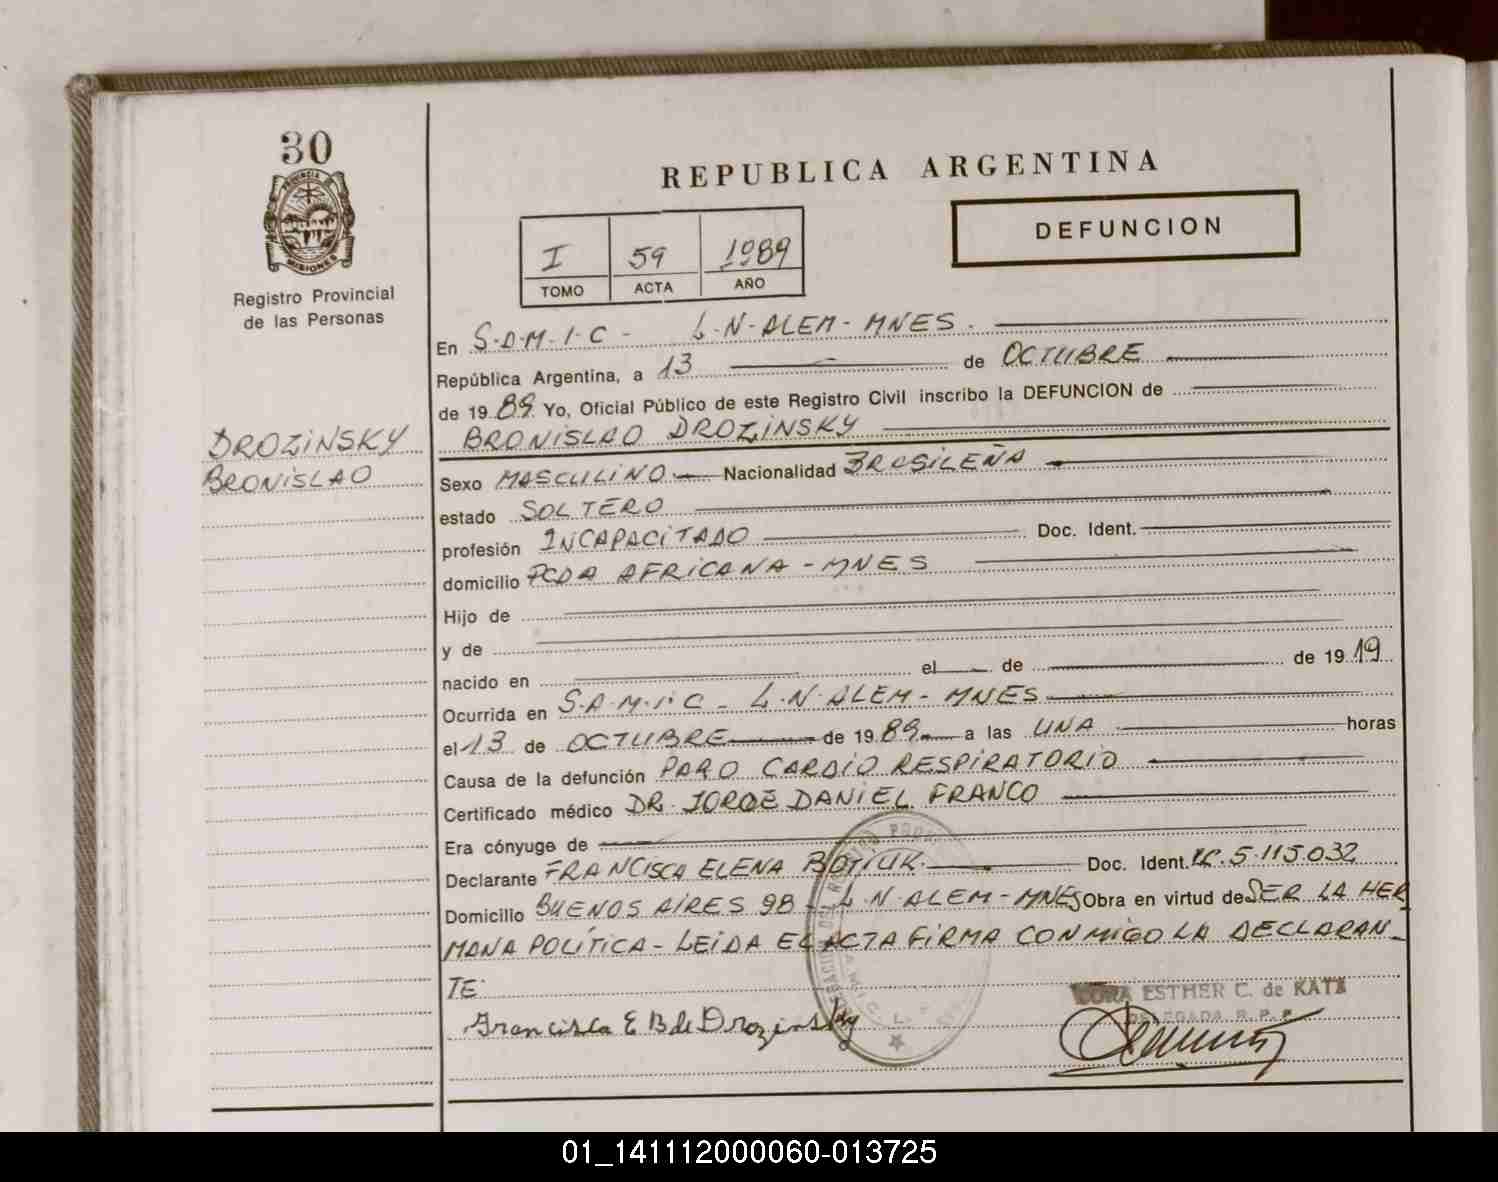 30
PROVINCIA
MISIONES
Registro Provincial
de las Personas
DROZINSKY
BRONISLAO
REPUBLICA ARGENTINA
DEFUNCION
I 59 1989
TOMO ACTA AÑO
En S.A.M.I.C - L.N-ALEM-MNES.
República Argentina, a 13 de OCTUBRE
de 1989. Yo, Oficial Público de este Registro Civil inscribo la DEFUNCION de
BRONISLAO DROZINSKY
Sexo MASCULINO Nacionalidad BRASILEÑA
estado SOLTERO
profesión INCAPACITADO Doc. Ident.
domicilio PCDA AFRICANA - MNES
Hijo de
y de
nacido en el de de 19 19
Ocurrida en S.A.M.I.C - L.N.ALEM - MNES
el 13 de OCTUBRE de 1989 a las UNA horas
Causa de la defunción PARO CARDIO RESPIRATORIO
Certificado médico DR. JORGE DANIEL FRANCO
Era cónyuge de
Declarante FRANCISCA ELENA BOTIUK. Doc. Ident. LC. 5.115.032
Domicilio BUENOS AIRES 98 - L.N.ALEM - MNES Obra en virtud de SER LA HER
MANA POLÍTICA - LEIDA EL ACTA FIRMA CONMIGO LA DECLARAN-
TE.
Francisca E B de Drozinsky
ESTHER C. de KATZ
DELEGADA R.P.P.
01_141112000060-013725